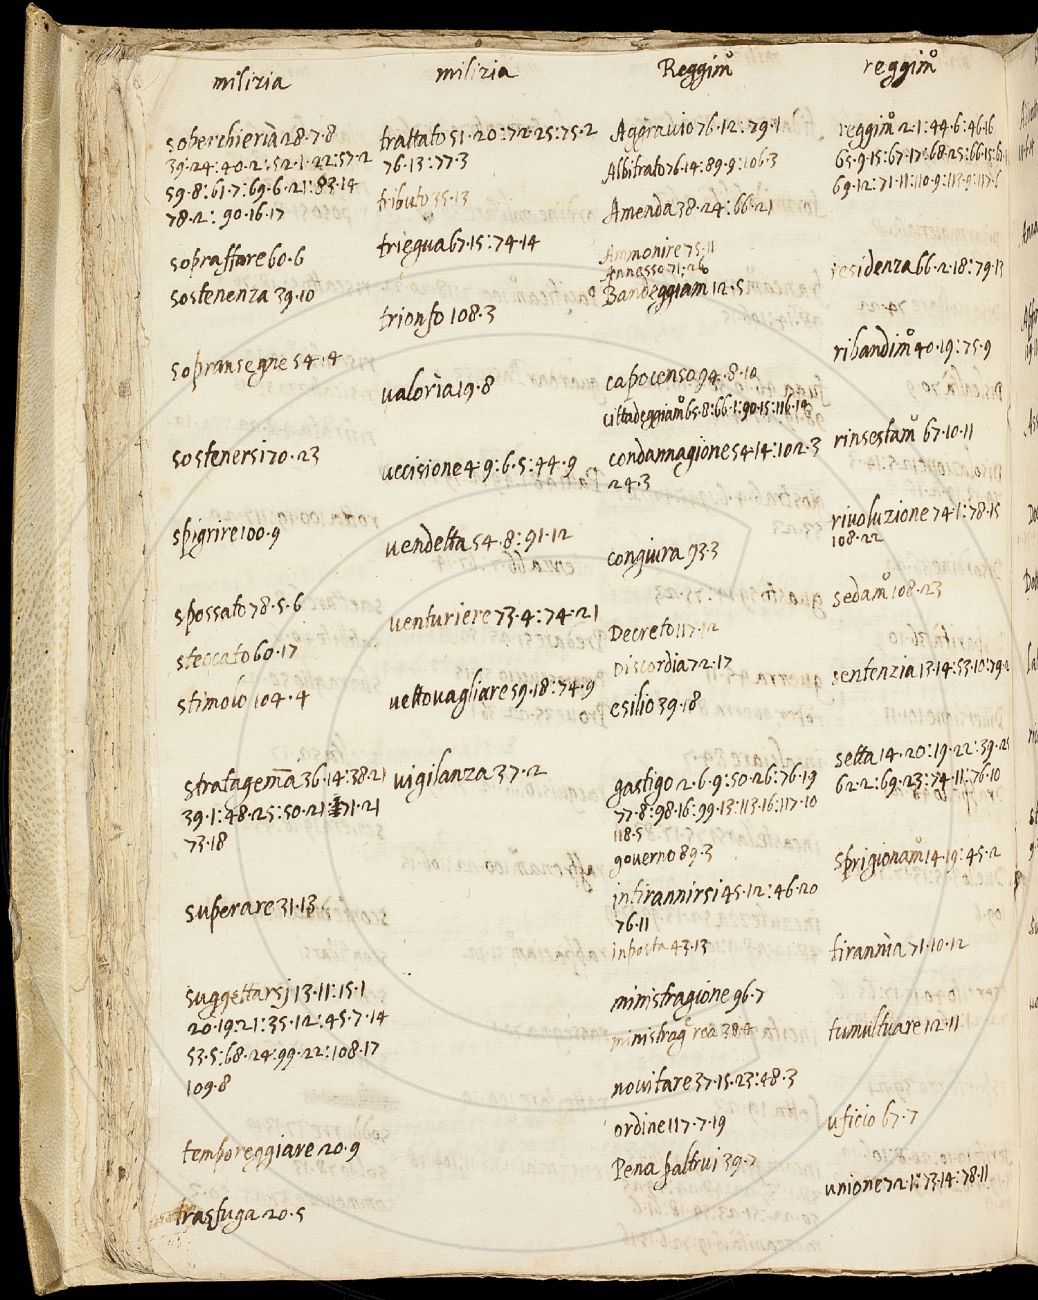 milizia
soperchieria 28·7·8
39·24:40·2:52·1·22:57·2
59·8:61·7:69·6·21:83·14
78·2:90·16·17
sopraffare 60·6
sostenenza 39·10
sopransegne 54·4
sostenersi 70·23
spigrire 100·9
spossato 78·5·6
steccato 60·17
stimolo 104·4
stratagema 36·14:38·21
39·1:48·25:50·21:71·21
73·18
superare 31·13
suggettarsj 13·11:15·1
20·19:21:35·12:45·7·14
53·5:68·24:99·22:108·17
109·8
temporeggiare 20·9
trasfuga 20·5
milizia
trattato 51·20:72·25:75·2
76·13:77·3
tributo 35·13
triegua 67·15:74·14
trionfo 108·3
valoria 19·8
uccisione 4·9:6·5:44·9
vendetta 54·8:91·12
venturiere 73·4:74·21
vettovagliare 59·18:74·9
vigilanza 37·2
Reggimo
Aggravio 76·12:79·1
Albitrato 76·14:89·9:106·3
Amenda 38·24:66·21
Ammonire 75·11
Annesso 71·26
Bandeggiam 12·5
capocenso 94·8·10
cittadeggiamo 65·8:66·1:90·15:116·19
condannagione 54·14:102·3
24·3
congiura 93·3
Decreto 117·12
Discordia 72·17
esilio 39·18
gastigo 2·6·9:50·26:76·19
77·8:98·16:99·13:113·16:117·10
118·5
governo 89·3
intirannirsi 45·12:46·20
76·11
inposta 43·13
ministragione 96·7
ministrag rea 38·4
novitare 37·15·23:48·3
ordine 117·7·19
Pena paltrui 39·7
reggimo
reggimo 2·1:44·6:46·16
65·9·15:67·17:68·25:66·15:
69·12:71·11:110·9:113·9:117·
residenza 66·2·18:79·13
ribandimo 40·19:75·9
rinsestamo 67·10·11
rivoluzione 74·1:78·15
108·22
sedamo 108·23
sentenzia 13·14:53·10:79·2
setta 14·20:19·22:39·25
62·2:69·23:74·11:76·10
sprigionamo 14·19:45·2
tirannia 71·10·12
tumultuare 12·11
uficio 67·7
unione 72·1:73·14:78·11